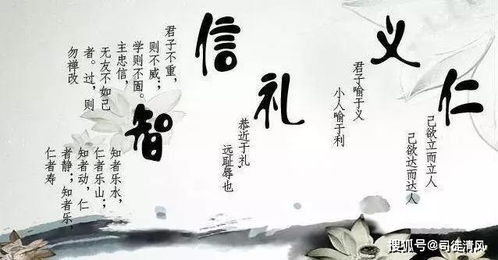 仁
己欲立而立人
己欲达而达人
义
君子喻于义
小人喻于利
礼
恭近于礼
远耻辱也
信
君子不重，
则不威；
学则不固。
主忠信，
无友不如己
者。过，则
勿禅改
智
知者乐水，
仁者乐山；
知者动，仁
者静；知者乐，
仁者寿
搜狐号@司徒清风